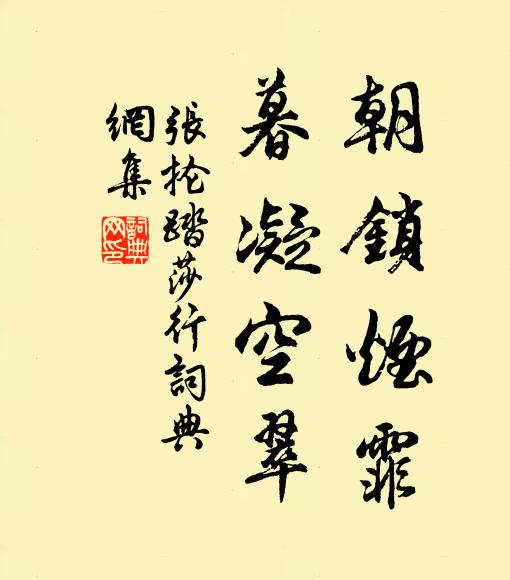 朝鎖煙霏
暮凝空翠
張掄踏莎行詞典
網集
詞典
網印